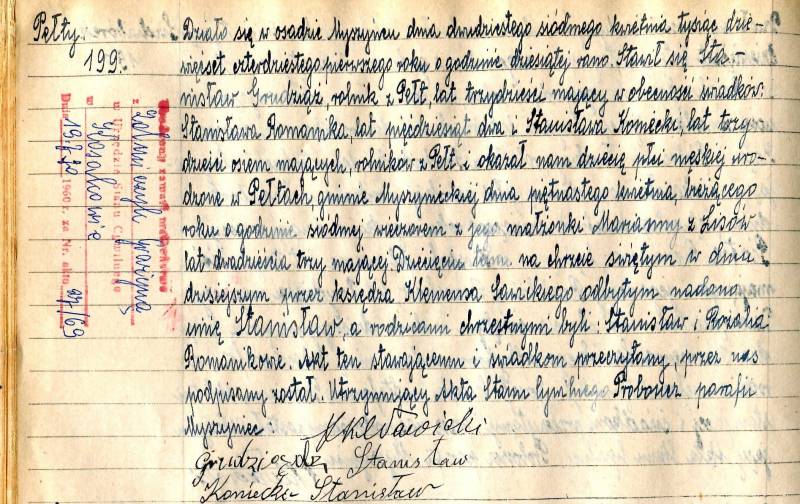 Pełty.
199.
Działo się w osadzie Myszyńcu dnia dwudziestego siódmego kwietnia tysiąc dzie-
więset czterdziestego pierwszego roku o godzinie dziesiątej rano. Stawił się Sta-
nisław Grudziąż, rolnik z Pełt, lat trzydzieści mający w obecności świadków:
Stanisława Romanika, lat pięćdziesiąt dwa i Stanisława Koniecki, lat trzy-
dzieści osiem mających, rolników z Pełt i okazał nam dziecię płci męskiej uro-
dzone w Pełtach gminie Myszynieckiej dnia piętnastego kwietnia, bieżącego
roku o godzinie siódmej wieczorem z jego małżonki Marianny z Lisów
lat dwadzieścia trzy mającej. Dziecięciu temu na chrzcie świętym w dniu
dzisiejszym przez księdza Klemensa Sawickiego odbytym nadano
imię Stanisław, a rodzicami chrzestnym byli: Stanisław i Rozalia
Romanikowie. Akt ten stawającemu i świadkom przeczytany, przez nas
podpisany został. Utrzymujący Akta Stanu Cywilnego Proboszcz parafii
Myszyniec:
Sawicki
Grudziądz Stanisław
Koniecki Stanisław
z
w Urzędzie Stanu Cywilnego
w
Dnia 1960 r. za Nr. aktu 27/69